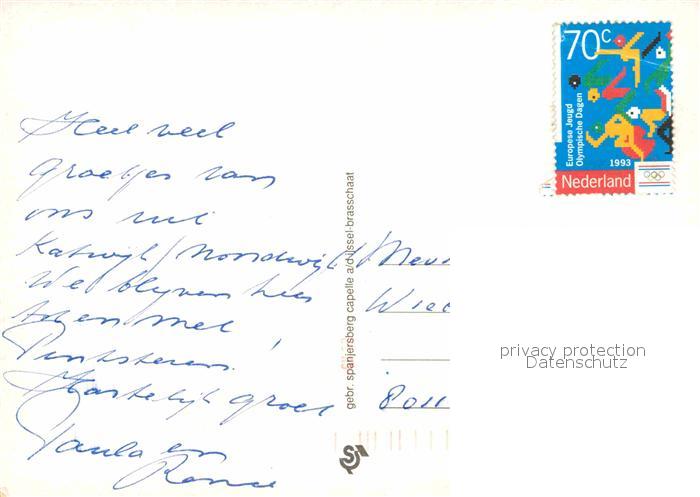 Heel veel
groetjes van
ons uit
Katwijk/Noordwijk
We blijven hier
met
Pinksteren!
Hartelijk groet
Paula en
gebr. spanjersberg capelle a/d ijssel-brasschaat
70c
Europese Jeugd
Olympische Dagen
1993
Nederland
privacy protection
Datenschutz